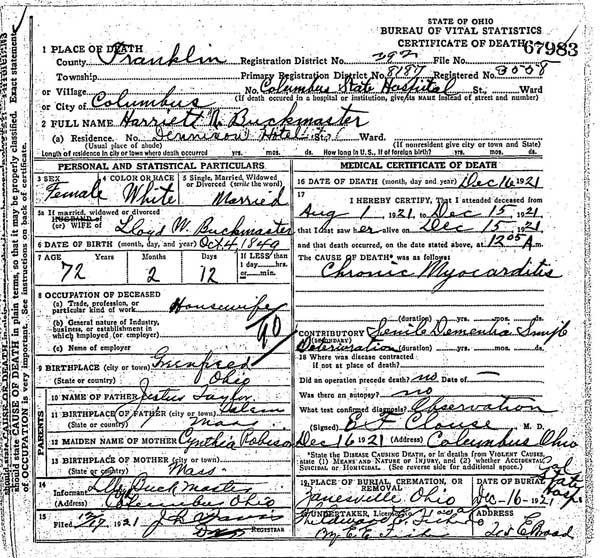 STATE OF OHIO
BUREAU OF VITAL STATISTICS
CERTIFICATE OF DEATH 67983
1 PLACE OF DEATH
County Franklin Registration District No. 392 File No.
Township Primary Registration District No. 8187 Registered No. 3008
or Village No. Columbus State Hospital St., Ward
or City of Columbus (If death occurred in a hospital or institution, give its NAME instead of street and number)
2 FULL NAME Harriett N. Buckmaster
(a) Residence. No. Dennison Hotel St., Ward.
(Usual place of abode) (If nonresident give city or town and State)
Length of residence in city or town where death occurred yrs. mos. ds. How long in U. S., if of foreign birth? yrs. mos. ds.
PERSONAL AND STATISTICAL PARTICULARS
3 SEX 4 COLOR OR RACE 5 Single, Married, Widowed or Divorced (write the word)
Female White Married
5a If married, widowed or divorced
HUSBAND of
(or) WIFE of Lloyd W. Buckmaster
6 DATE OF BIRTH (month, day, and year) Oct 4 1849
7 AGE Years Months Days If LESS than
1 day hrs.
or min.
72 2 12
8 OCCUPATION OF DECEASED
(a) Trade, profession, or
particular kind of work Housewife
(b) General nature of Industry,
business, or establishment in
which employed (or employer)
(c) Name of employer
9 BIRTHPLACE (city or town) Greenfield
(State or country) Ohio
10 NAME OF FATHER Justus Taylor
11 BIRTHPLACE OF FATHER (city or town)
(State or country) Mass
12 MAIDEN NAME OF MOTHER Cynthia Robison
13 BIRTHPLACE OF MOTHER (city or town)
(State or country) Mass.
PARENTS
14
Informant Buckmaster
(Address) Columbus Ohio
15
Filed 1921
REGISTRAR
MEDICAL CERTIFICATE OF DEATH
16 DATE OF DEATH (month, day and year) Dec 16 1921
17
I HEREBY CERTIFY, That I attended deceased from
Aug 1, 1921, to Dec 15, 1921
that I last saw her alive on Dec 15, 1921
and that death occurred, on the date stated above, at 12 05 A m.
The CAUSE OF DEATH* was as follows:
Chronic Myocarditis
(duration) yrs. mos. ds.
CONTRIBUTORY Senile Dementia Simple
(SECONDARY)
Deterioration (duration) yrs. mos. ds.
18 Where was disease contracted
if not at place of death?
Did an operation precede death? no Date of
Was there an autopsy? no
What test confirmed diagnosis? Observation
(Signed) E F Clouse M. D.
Dec 16 1921 (Address) Columbus Ohio
*State the DISEASE CAUSING DEATH, or in deaths from VIOLENT CAUSES,
state (1) MEANS AND NATURE OF INJURY, and (2) whether ACCIDENTAL,
SUICIDAL or HOMICIDAL. (See reverse side for additional space.)
19 PLACE OF BURIAL, CREMATION, OR REMOVAL DATE OF BURIAL
Zanesville Ohio Dec-16-1921
20 UNDERTAKER, License No.